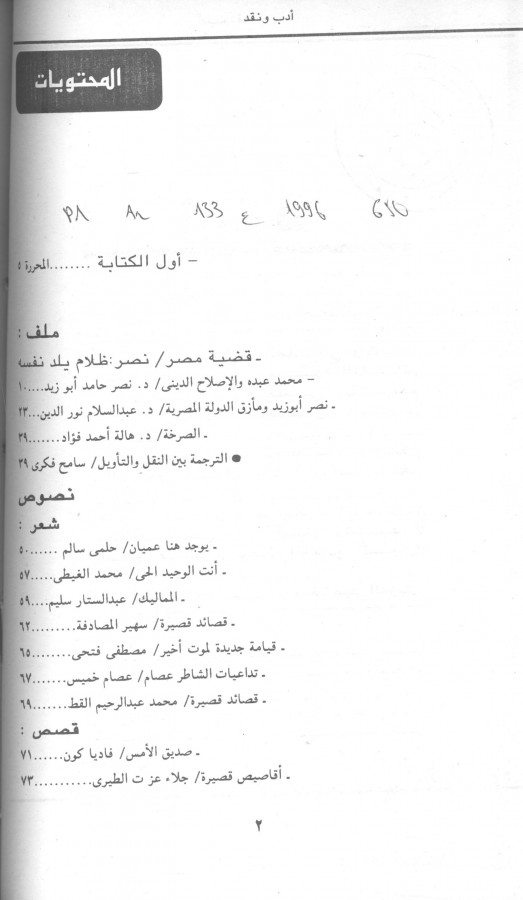 أدب ونقد
المحتويات
P1 An 133 ع 1996
– أول الكتابة ........المحررة ٥
ملف :
ـ قضية مصر/ نصر:ظلام يلد نفسه
– محمد عبده والإصلاح الدينى/ د. نصر حامد أبو زيد.....١٠
ـ نصر أبوزيد ومأزق الدولة المصرية/ د. عبدالسلام نور الدين...٢٣
ـ الصرخة/ د. هالة أحمد فؤاد.......٣٩
● الترجمة بين النقل والتأويل/ سامح فكرى ٣٩
نصوص
شعر :
ـ يوجد هنا عميان/ حلمى سالم ......٥٠
ـ أنت الوحيد الحى/ محمد الغيطى.....٥٧
ـ المماليك/ عبدالستار سليم....٥٩
ـ قصائد قصيرة/ سهير المصادفة.........٦٢
ـ قيامة جديدة لموت أخير/ مصطفى فتحى........٦٥
ـ تداعيات الشاطر عصام/ عصام خميس.......٦٧
ـ قصائد قصيرة/ محمد عبدالرحيم القط.......٦٩
قصص :
ـ صديق الأمس/ فاديا كون......٧١
ـ أقاصيص قصيرة/ جلاء عز ت الطيرى...........٧٣
٢